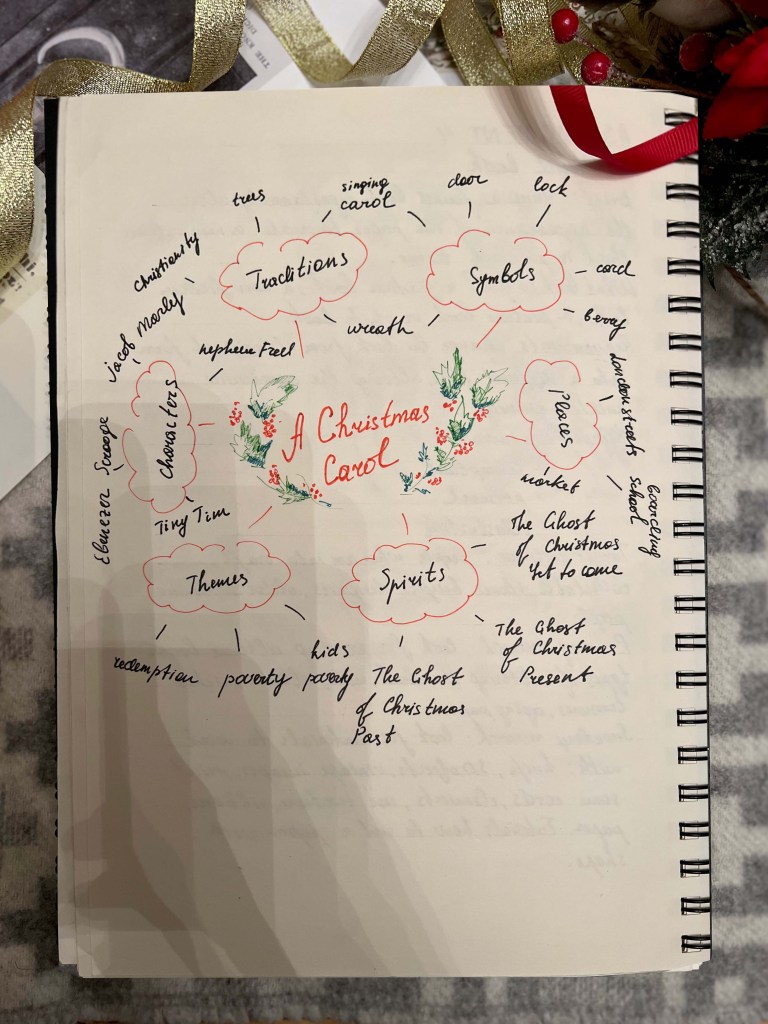 trees
singing
carol
door
lock
christianity
Traditions
Symbols
card
berry
wreath
Jacob Marly
nepheue Fred
London streets
Characters
Places
A Christmas
Carol
Ebenezer Scrooge
market
boarding
school
Tiny Tim
The Ghost
of Christmas
Yet to come
Themes
Spirits
redemption
poverty
kids
poverty
The Ghost
of Christmas
Present
The Ghost
of Christmas
Past